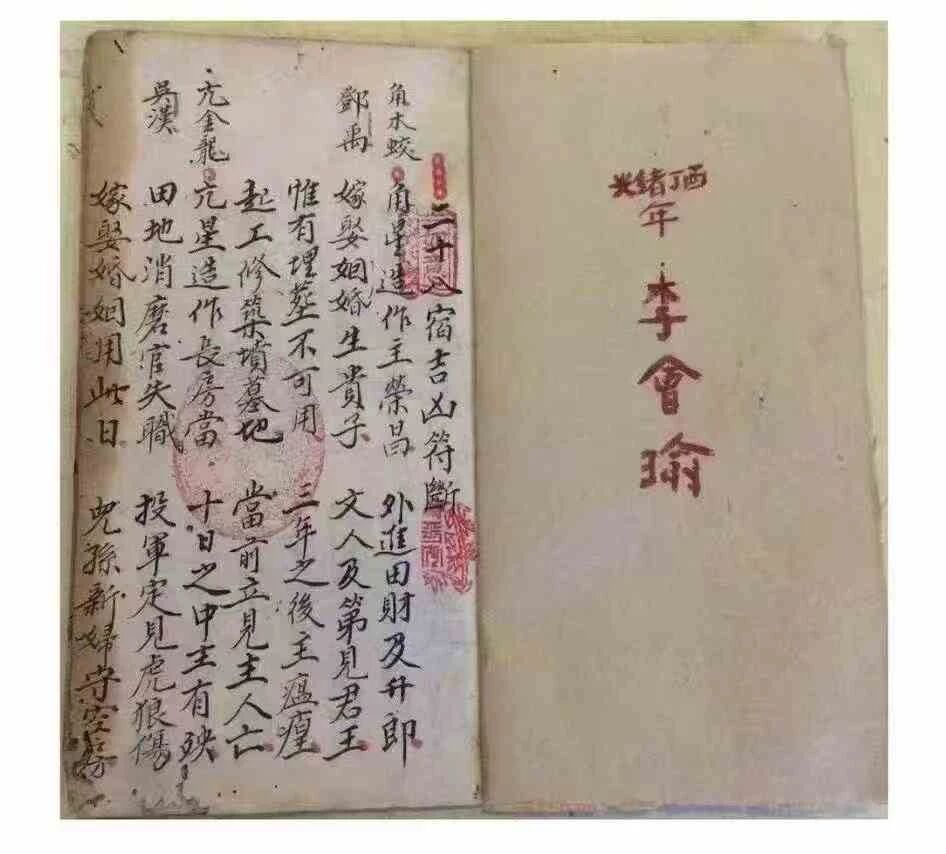 光緒丁酉
年
李會瑜
二十八宿吉凶符斷
角木蛟
角星造作主榮昌 外進田財及升郎
鄧禹
嫁娶姻婚生貴子 文人及第見君王
惟有埋葬不可用 三年之後主瘟㾮
起工修築墳墓地 當前立見主人亡
亢金龍
亢星造作長房當 十日之中主有殃
吳漢
田地消磨官失職 投軍定見虎狼傷
嫁娶婚姻用此日 兒孫新婦守空房